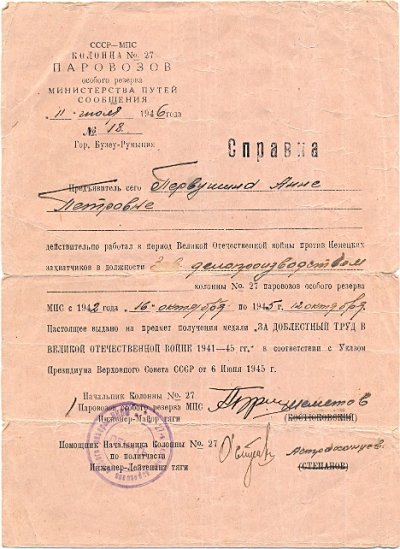 СССР—МПС
КОЛОННА № 27
ПАРОВОЗОВ
особого резерва
МИНИСТЕРСТВА ПУТЕЙ
СООБЩЕНИЯ
"11" июля 1946 года
№ 18.
Гор. Бузеу-Румыния
Справка
Предъявитель сего Первушина Анне
Петровне
действительно работал в период Великой Отечественной войны против Немецких
захватчиков в должности Зав делопроизводством
колонны № 27 паровозов особого резерва
МПС с 1942 года 16 октября по 1945 г. 12 октября
Настоящее выдано на предмет получения медали „ЗА ДОБЛЕСТНЫЙ ТРУД В
ВЕЛИКОЙ ОТЕЧЕСТВЕННОЙ ВОЙНЕ 1941—45 гг." в соответствии с Указом
Президиума Верховного Совета СССР от 6 Июня 1945 г.
Начальник Колонны № 27
Паровозов особого резерва МПС
Инженер-Майор тяги (КОСТЮКОВСКИЙ)
Помощник Начальника Колонны № 27
по политчасти
Инженер-Лейтенант тяги (СТЕПАНОВ)